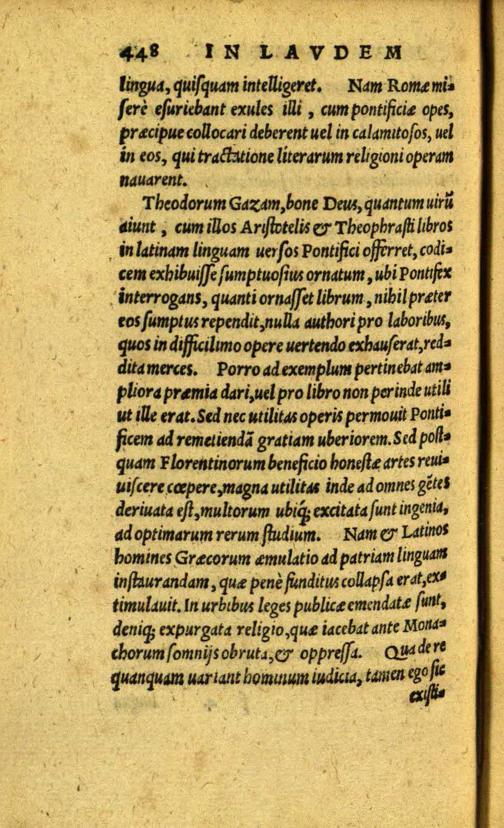 448 IN LAVDEM
lingua, quiſquam intelligeret. Nam Romæ mi-
ſerè eſuriebant exules illi, cum pontificiæ opes,
præcipue collocari deberent uel in calamitoſos, uel
in eos, qui tractatione literarum religioni operam
nauarent.
Theodorum Gazam, bone Deus, quantum uirū
aiunt, cum illos Ariſtotelis & Theophraſti libros
in latinam linguam uerſos Pontifici offerret, codi-
cem exhibuiſſe ſumptuoſius ornatum, ubi Pontifex
interrogans, quanti ornaſſet librum, nihil præter
eos ſumptus rependit, nulla authori pro laboribus,
quos in difficilimo opere uertendo exhauſerat, red-
dita merces. Porro ad exemplum pertinebat am-
pliora præmia dari, uel pro libro non perinde utili
ut ille erat. Sed nec utilitas operis permouit Ponti-
ficem ad remetiendā gratiam uberiorem. Sed poſt-
quam Florentinorum beneficio honeſtæ artes reui-
uiſcere cœpere, magna utilitas inde ad omnes gētes
deriuata eſt, multorum ubiq; excitata ſunt ingenia,
ad optimarum rerum ſtudium. Nam & Latinos
homines Græcorum æmulatio ad patriam linguam
inſtaurandam, quæ penè funditus collapſa erat, ex-
timulauit. In urbibus leges publicæ emendatæ ſunt,
deniq; expurgata religio, quæ iacebat ante Mona-
chorum ſomnijs obruta, & oppreſſa. Qua de re
quanquam uariant hominum iudicia, tamen ego ſic
exiſti-